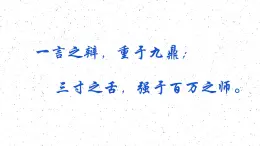 一言之辩，重于九鼎；
三寸之舌，强于百万之师。